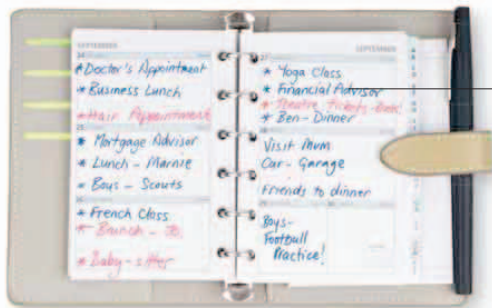 SEPTEMBER
24
* Doctor's Appointment
* Business Lunch
* Hair Appointment
25
* Mortgage Advisor
* Lunch - Marnie
* Boys - Scouts
* French Class
* Brunch - Jo
* Baby-sitter
SEPTEMBER
27
* Yoga Class
* Financial Advisor
* Theatre Tickets-
* Ben - Dinner
Visit Mum
Car - Garage
Friends to dinner
Boys -
Football
Practice!